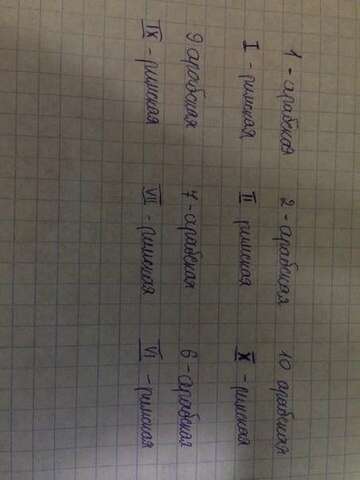 1 - арабская 2 - арабская 10 арабская
I - римская II римская X - римская
9 арабская 7 - арабская 6 - арабская
IX - римская VII - римская VI - римская